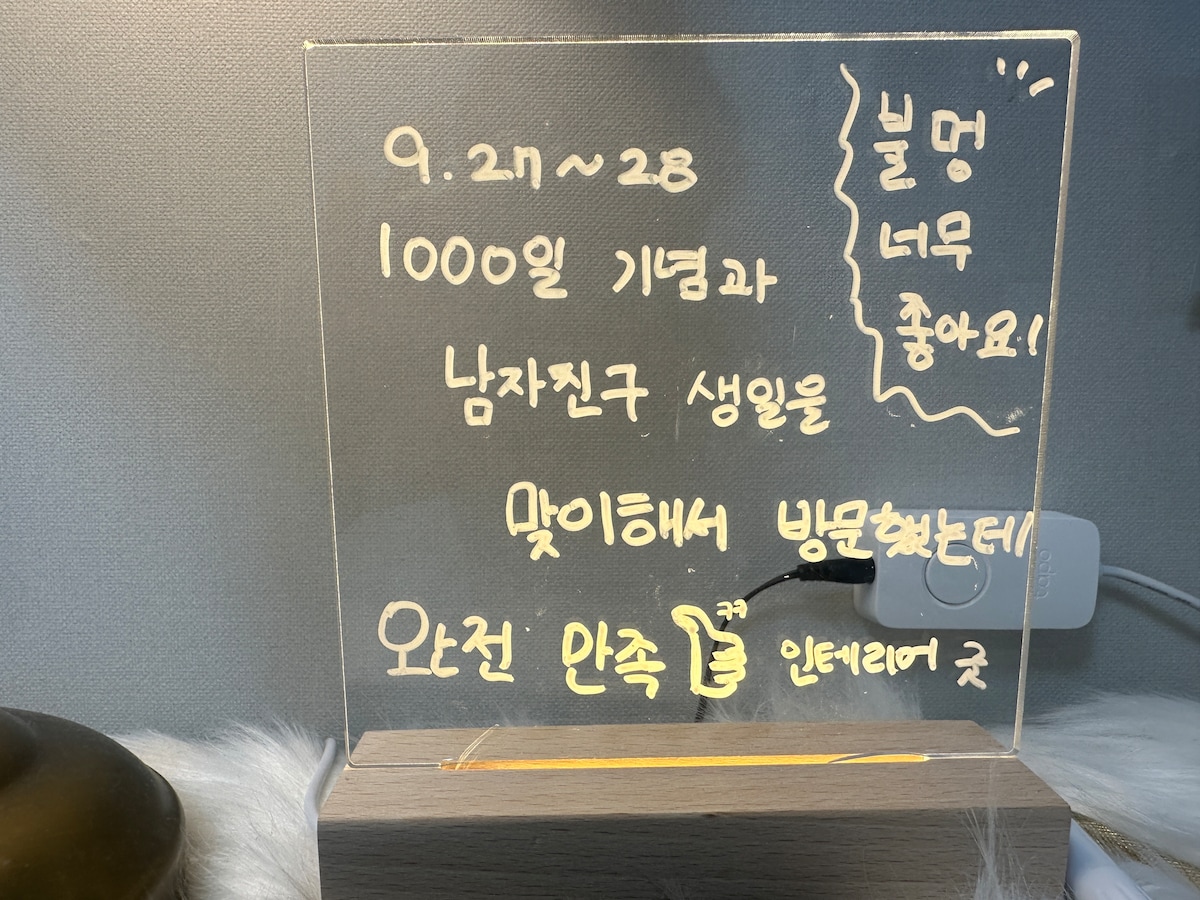 9.27~28
1000일 기념과
남자친구 생일을
맞이해서 방문했는데
완전 만족 ㅋㅋ 인테리어 굿
불멍
너무
좋아요!